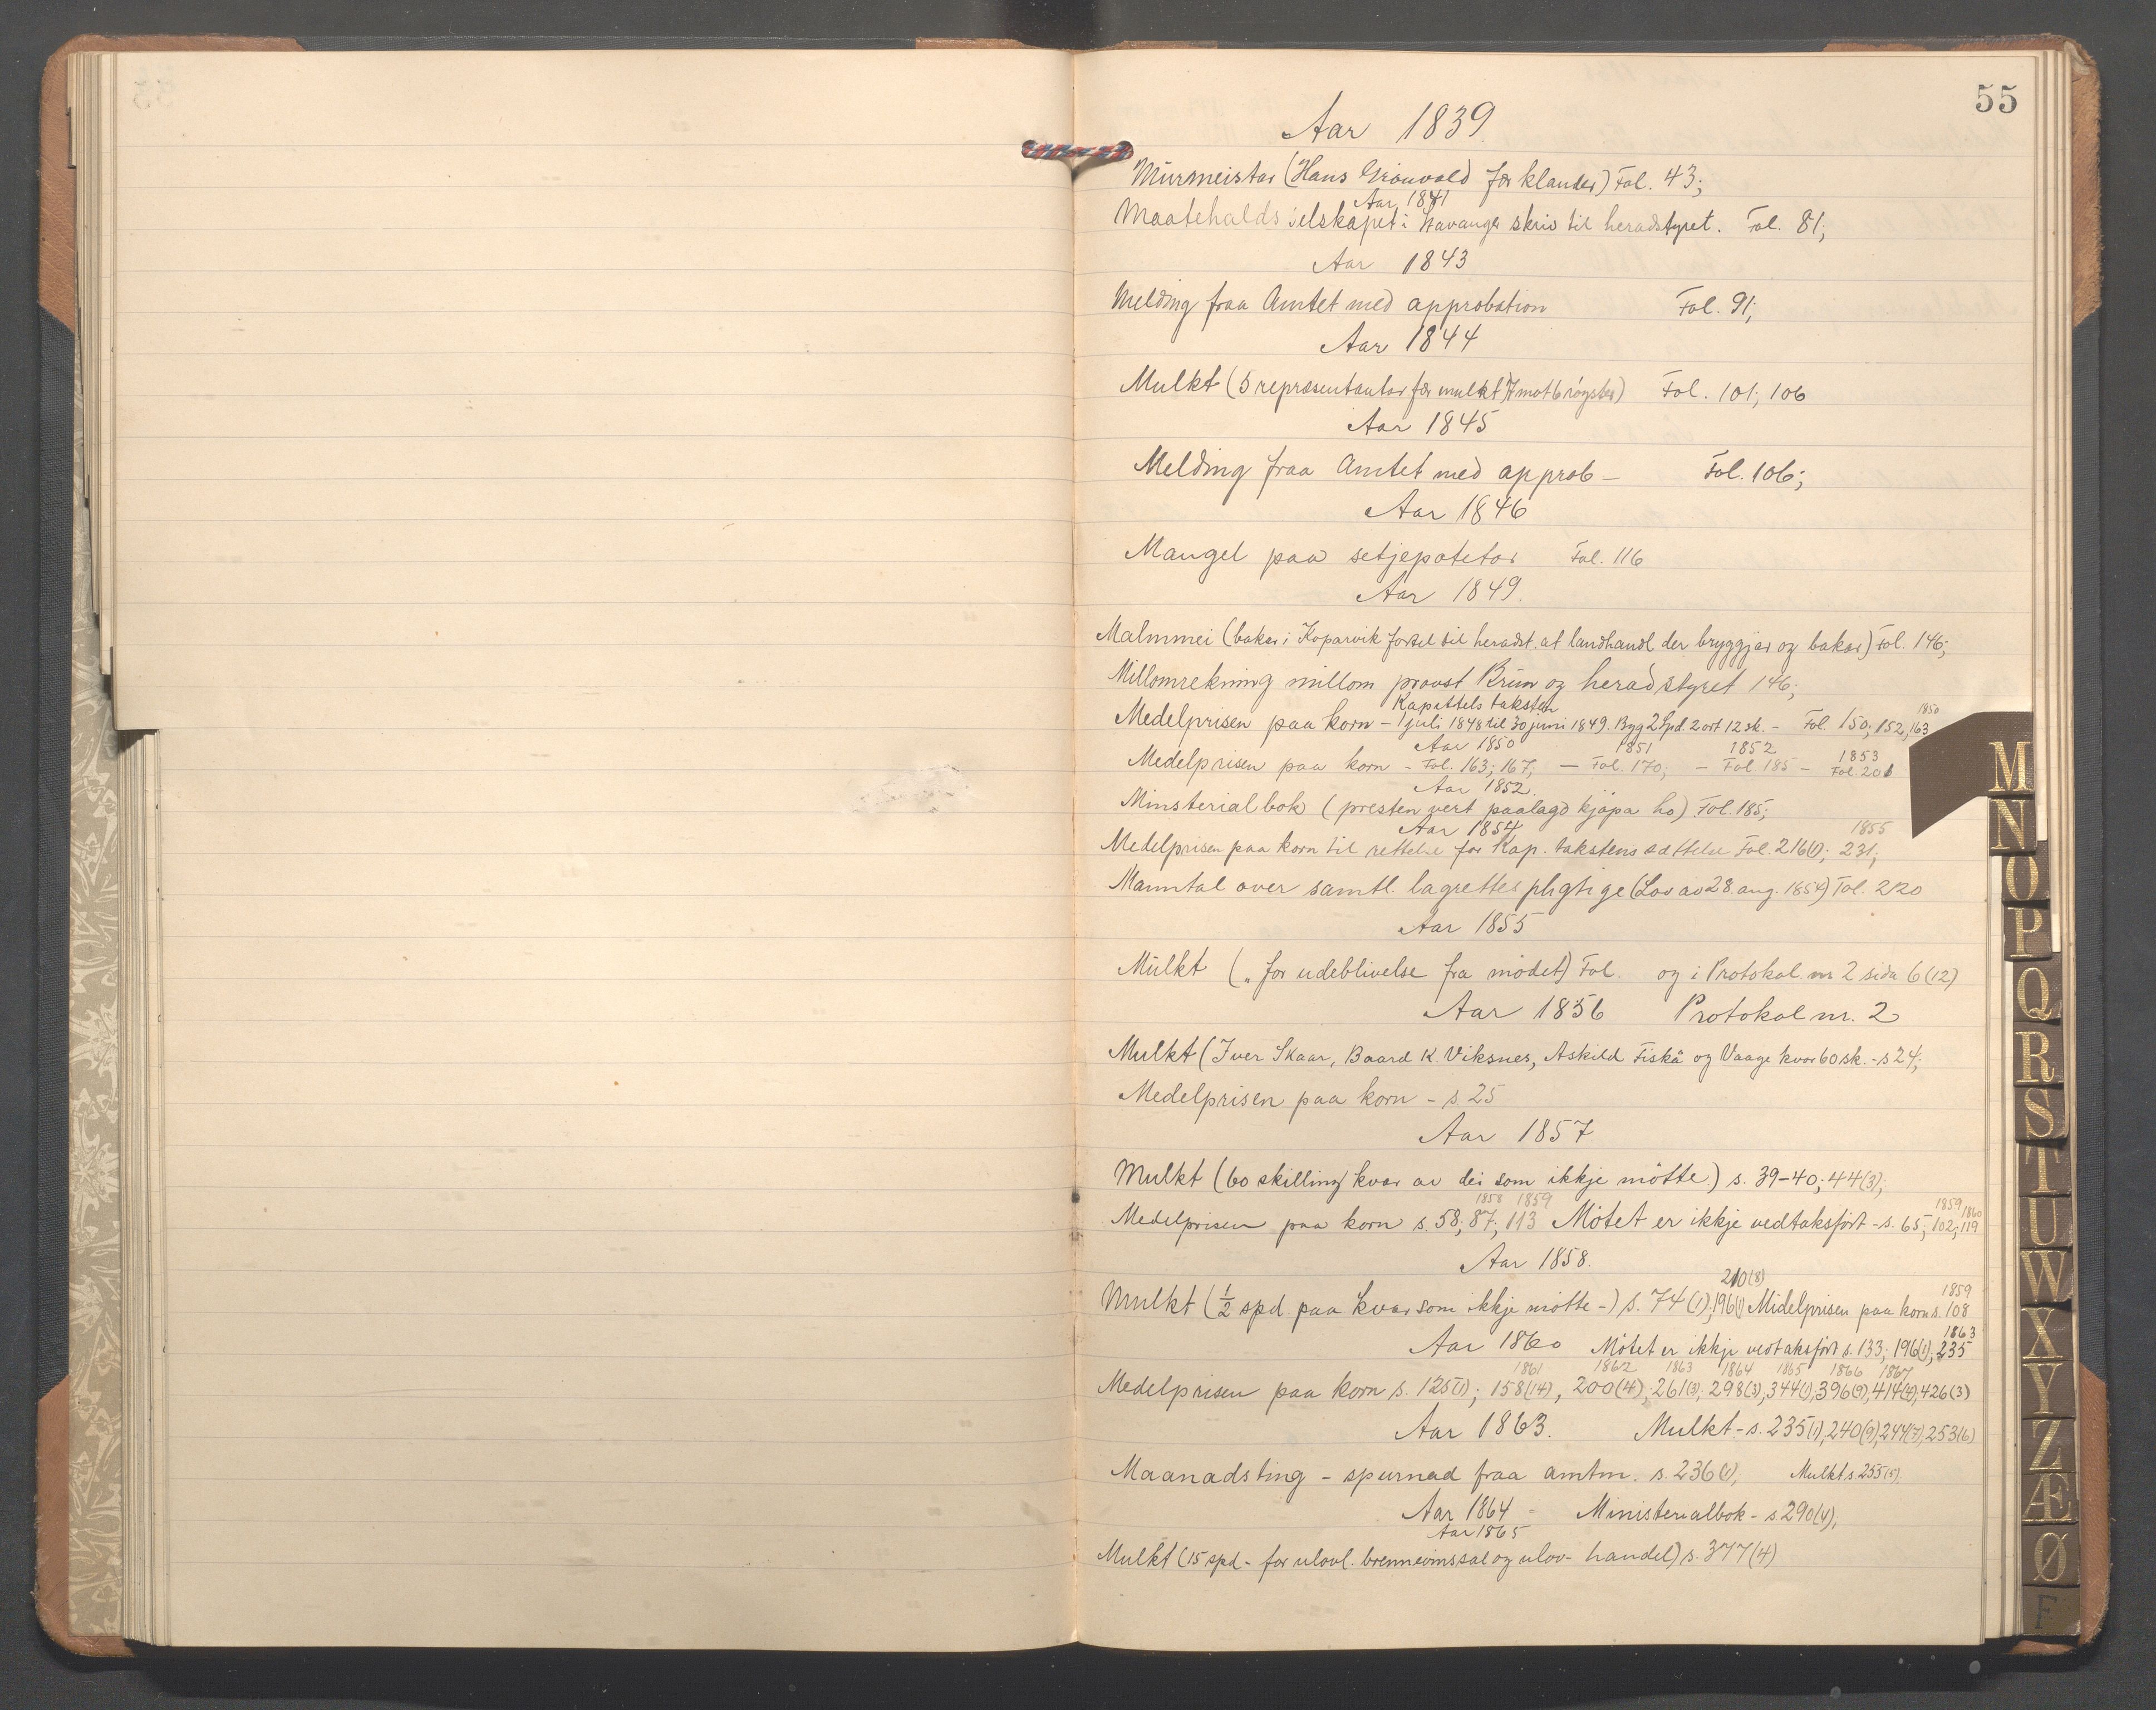 55
Aar 1839
Murmeistar (Hans Grönvold fær klander) Fol. 43;
Aar 1841
Maatehaldsselskapet i Stavanger skriv til heradstyret. Fol. 81;
Aar 1843
Melding fraa Amtet med approbation Fol. 91;
Aar 1844
Mulkt (5 representantar fær mulkt) 7 mot 6 röyster) Fol. 101; 106
Aar 1845
Melding fraa Amtet med approb – Fol. 106;
Aar 1846
Mangel paa setjepoteter Fol. 116
Aar 1849.
Malmmei (bakar i Koparvik fortel til heradst. at landhandl der bryggjar og bakar) Fol. 146;
Millomrekning millom provst Brun og heradstyret 146;
Kapittelstaksten 1850
Medelprisen paa korn – 1 juli 1848 til 30 juni 1849. Byg 2 Spd. 2 ort 12 sk. – Fol. 150; 152, 163
Aar 1850 1851 1852 1853
Medelprisen paa korn – Fol. 163; 167; – Fol. 170; – Fol. 185 – Fol. 201
Aar 1852.
Minsterialbok (presten vert paalagd kjöpa ho) Fol. 185;
Aar 1854 1855
Medelprisen paa korn til rettelse for Kap. takstens sættelse Fol. 216(1); 231;
Manntal over samtl. lagrettes pligtige (Lov av 28. aug. 1854) Fol. 220
Aar 1855
Mulkt („ for udeblivelse fra mödet) Fol. og i Protokol nr 2 sida 6 (12)
Aar 1856 Protokol nr. 2
Mulkt (Iver Skaar, Baard K. Viksnes, Askild Fiskå og Vaage kvar 60 sk. – s 24;
Medelprisen paa korn – s. 25
Aar 1857
Mulkt (60 skilling kvar av dei som ikkje mötte.) s. 39–40; 44(3);
1858 1859 1859 1860
Medelprisen paa korn s. 58; 87; 113 Mötet er ikkje vedtaksfört – s. 65; 102; 119
Aar 1858.
210(8) 1859
Mulkt (½ spd. paa kvar som ikkje mötte –) s. 74 (1); 196(1) Midelprisen paa korn s. 108
1863
Aar 1860 Mötet er ikkje vedtaksfört s. 133; 196(1); 235
1861 1862 1863 1864 1865 1866 1867
Medelprisen paa korn s. 125(1); 158(14), 200(4); 261(3); 298(3), 344(1), 396(9), 414(4), 426(3)
Aar 1863. Mulkt – s. 235(1), 240(9), 244(7), 253(6)
Maanadsting – spurnad fraa amtm. s. 236(1), Mulkt s 255(5).
Aar 1864 – Ministerialbok – s 290(4),
Aar 1865
Mulkt (15 spd – for ulovl. brennevinssal og ulov– handel) s. 377(4)
M
N
O
P
Q
R
S
T
U
W
X
Y
Z
Æ
Ø
F